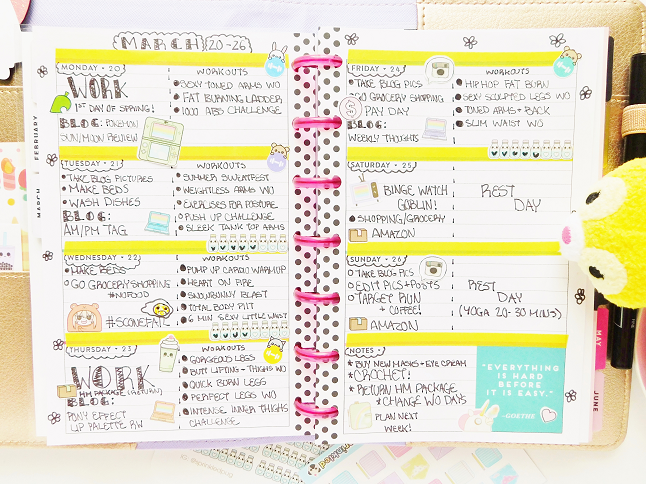 MARCH (20-26)
MONDAY • 20
WORK
1ST DAY OF SPRING!
BLOG: POKEMON
SUN/MOON REVIEW
WORKOUTS
SEXY TONED ARMS WO
FAT BURNING LADDER
1000 ABS CHALLENGE
TUESDAY • 21
TAKE BLOG PICTURES
MAKE BEDS
WASH DISHES
BLOG:
AM/PM TAG
WORKOUTS
SUMMER SWEATFEST
WEIGHTLESS ARMS WO
EXERCISES FOR POSTURE
PUSH UP CHALLENGE
SLEEK TANK TOP ARMS
WEDNESDAY • 22
MAKE BEDS
GO GROCERY SHOPPING
#NOFOOD
#SCONEFAIL
PUMP UP CARDIO WARMUP
HEART ON FIRE
SNOWBUNNY BLAST
TOTAL BODY PIIT
6 MIN SEXY LITTLE WAIST
THURSDAY • 23
WORK
HM PACKAGE (RETURN)
BLOG:
PONY EFFECT
LIP PALETTE RW
WORKOUTS
GORGEOUS LEGS
BUTT LIFTING + THIGHS WO
QUICK BORN LEGS
PERFECT LEGS WO
INTENSE INNER THIGHS
CHALLENGE
FRIDAY • 24
TAKE BLOG PICS
GO GROCERY SHOPPING
PAY DAY
BLOG:
WEEKLY THOUGHTS
WORKOUTS
HIP HOP FAT BURN
SEXY SCULPTED LEGS WO
TONED ARMS + BACK
SLIM WAIST WO
SATURDAY • 25
BINGE WATCH
GOBLIN!
SHOPPING/GROCERY
AMAZON
REST
DAY
SUNDAY • 26
TAKE BLOG PICS
EDIT PICS + POSTS
TARGET RUN
+ COFFEE!
AMAZON
REST
DAY
(YOGA 20-30 MINS)
NOTES
* BUY NEW MASKS + EYE CREAM
* CROCHET!
* RETURN HM PACKAGE
* CHANGE WO DAYS
PLAN NEXT
WEEK!
"EVERYTHING
IS HARD
BEFORE
IT IS EASY."
-GOETHE
FEBRUARY
MARCH
MAY
JUNE